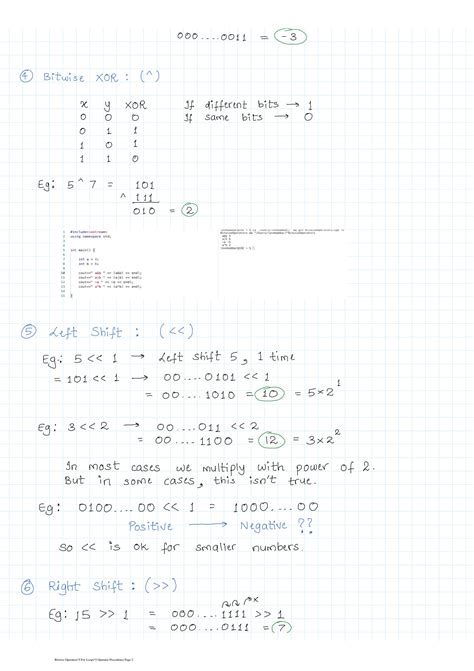 000....0011 = -3
④ Bitwise XOR : (^)
x y XOR If different bits → 1
0 0 0 If same bits → 0
0 1 1
1 0 1
1 1 0
Eg: 5 ^ 7 = 101
^ 111
010 = 2
1 #include<iostream>
2 using namespace std;
5 int main() {
int a =
int b =
cout<<" a&b " << (a&b) << endl;
cout<<" a|b " << (a|b) << endl;
cout<<" ~a " << ~a << endl;
cout<<" a^b " << (a^b) << endl;
}
⑤ Left Shift : (<<)
Eg: 5 << 1 → Left Shift 5, 1 time
= 101 << 1 → 00....0101 << 1
= 00....1010 = 10 = 5×2¹
Eg: 3 << 2 → 00....011 << 2
= 00....1100 = 12 = 3×2²
In most cases we multiply with power of 2.
But in some cases, this isn't true.
Eg: 0100....00 << 1 = 1000....00
Positive → Negative ??
So << is ok for smaller numbers.
⑥ Right Shift : (>>)
Eg: 15 >> 1 = 000....1111 >> 1
= 000....0111 = 7